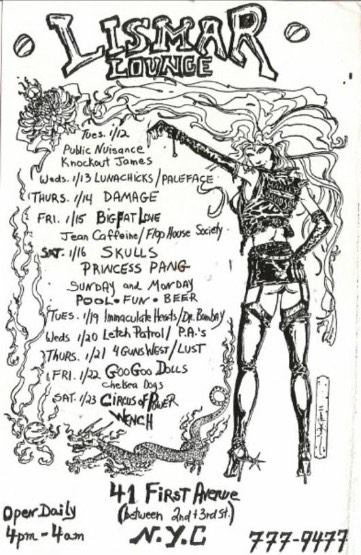 LISMAR
LOUNGE
Tues. 1/12
Public Nuisance
Knockout James
Weds. 1/13 LUNACHICKS/PALEFACE
THURS. 1/14 DAMAGE
FRI. 1/15 BIG FAT LOVE
Jean Caffeine/Flop House Society
SAT. 1/16 SKULLS
PRINCESS PANG
SUNDAY and MONDAY
POOL • FUN • BEER
TUES. 1/19 Immaculate Hearts/Dr. Bombay
Weds 1/20 Letch Patrol/P.A.'s
THURS. 1/21 4 GUNS WEST/LUST
FRI. 1/22 GOO GOO DOLLS
Chelsea Dogs
SAT. 1/23 CIRCUS OF POWER
WENCH
41 FIRST AVENUE
(between 2nd + 3rd st.)
N.Y.C
Open Daily
4pm-4am
777-9477